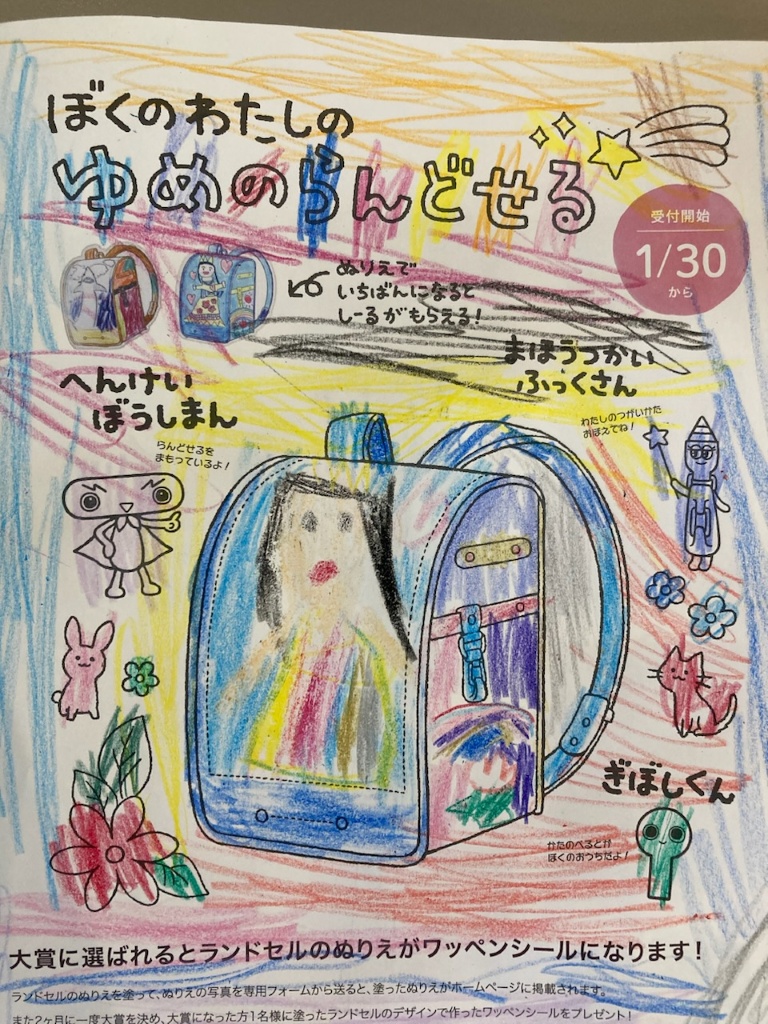 ぼくのわたしの
ゆめのらんどせる
受付開始
1/30
から
ぬりえで
いちばんになると
しーるがもらえる!
へんけい
ぼうしまん
らんどせるを
まもっているよ!
まほうつかい
ふっくさん
わたしのつかいかた
おぼえてね!
ぎぼしくん
かたのべるとが
ぼくのおうちだよ!
大賞に選ばれるとランドセルのぬりえがワッペンシールになります!
ランドセルのぬりえを塗って、ぬりえの写真を専用フォームから送ると、塗ったぬりえがホームページに掲載されます。
また2ヶ月に一度大賞を決め、大賞になった方1名様に塗ったランドセルのデザインで作ったワッペンシールをプレゼント!